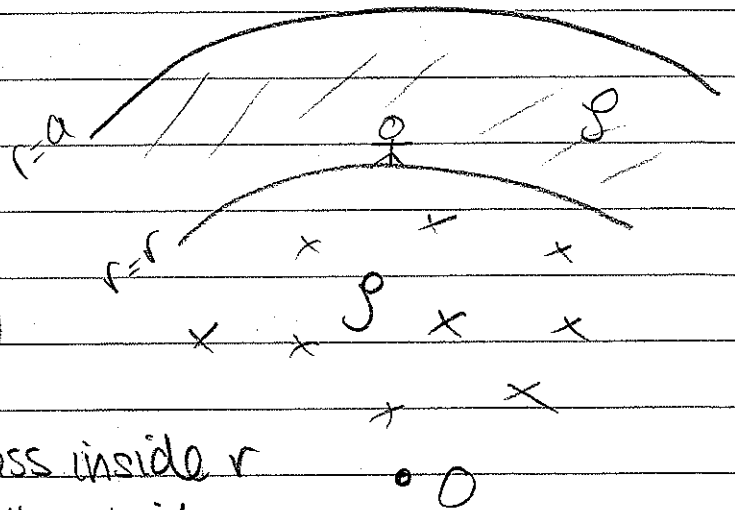 r=a
ρ
r=r
ρ
inside r
O